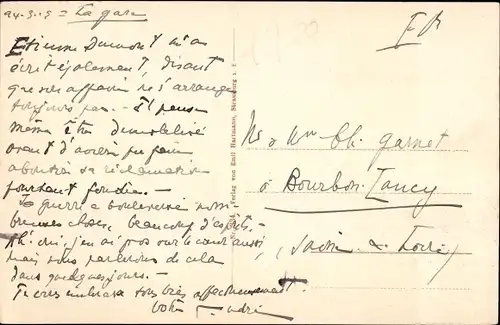 24.3.19 = La gare
Etienne Dumont m'a
écrit également, disant
que ses affaires ne s'arrangent
toujours pas. - Il pense
même être démobilisé
avant d'avoir pu faire
aboutir sa réclamation
pourtant fondée. -
La guerre a bouleversé nom-
breuses choses, beaucoup d'esprits. -
Ah! oui, j'en ai gros sur le cœur aussi,
mais nous parlerons de cela
dans quelques jours. -
Je vous embrasse tous très affectueusement.
Votre André
Verlag von Emil Hartmann, Strassburg i. E.
F M
Mr & Mme Ch. Garnet
à Bourbon-Lancy
(Saône & Loire)